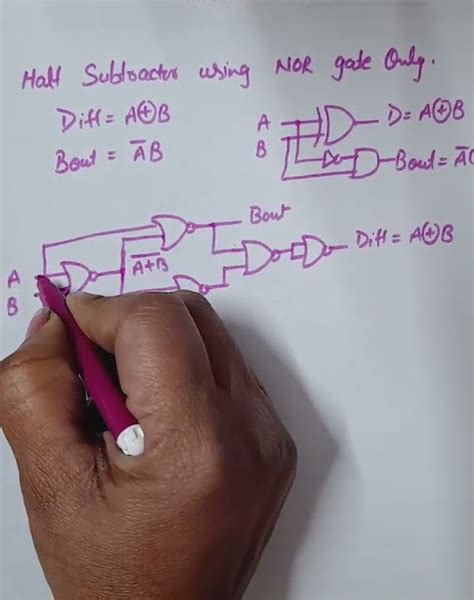 Half Subtractor using NOR gate Only.
Diff = A⊕B
Bout = A̅B
A
B
D = A⊕B
Bout = A̅
Bout
A̅+̅B̅
Diff = A⊕B
A
B